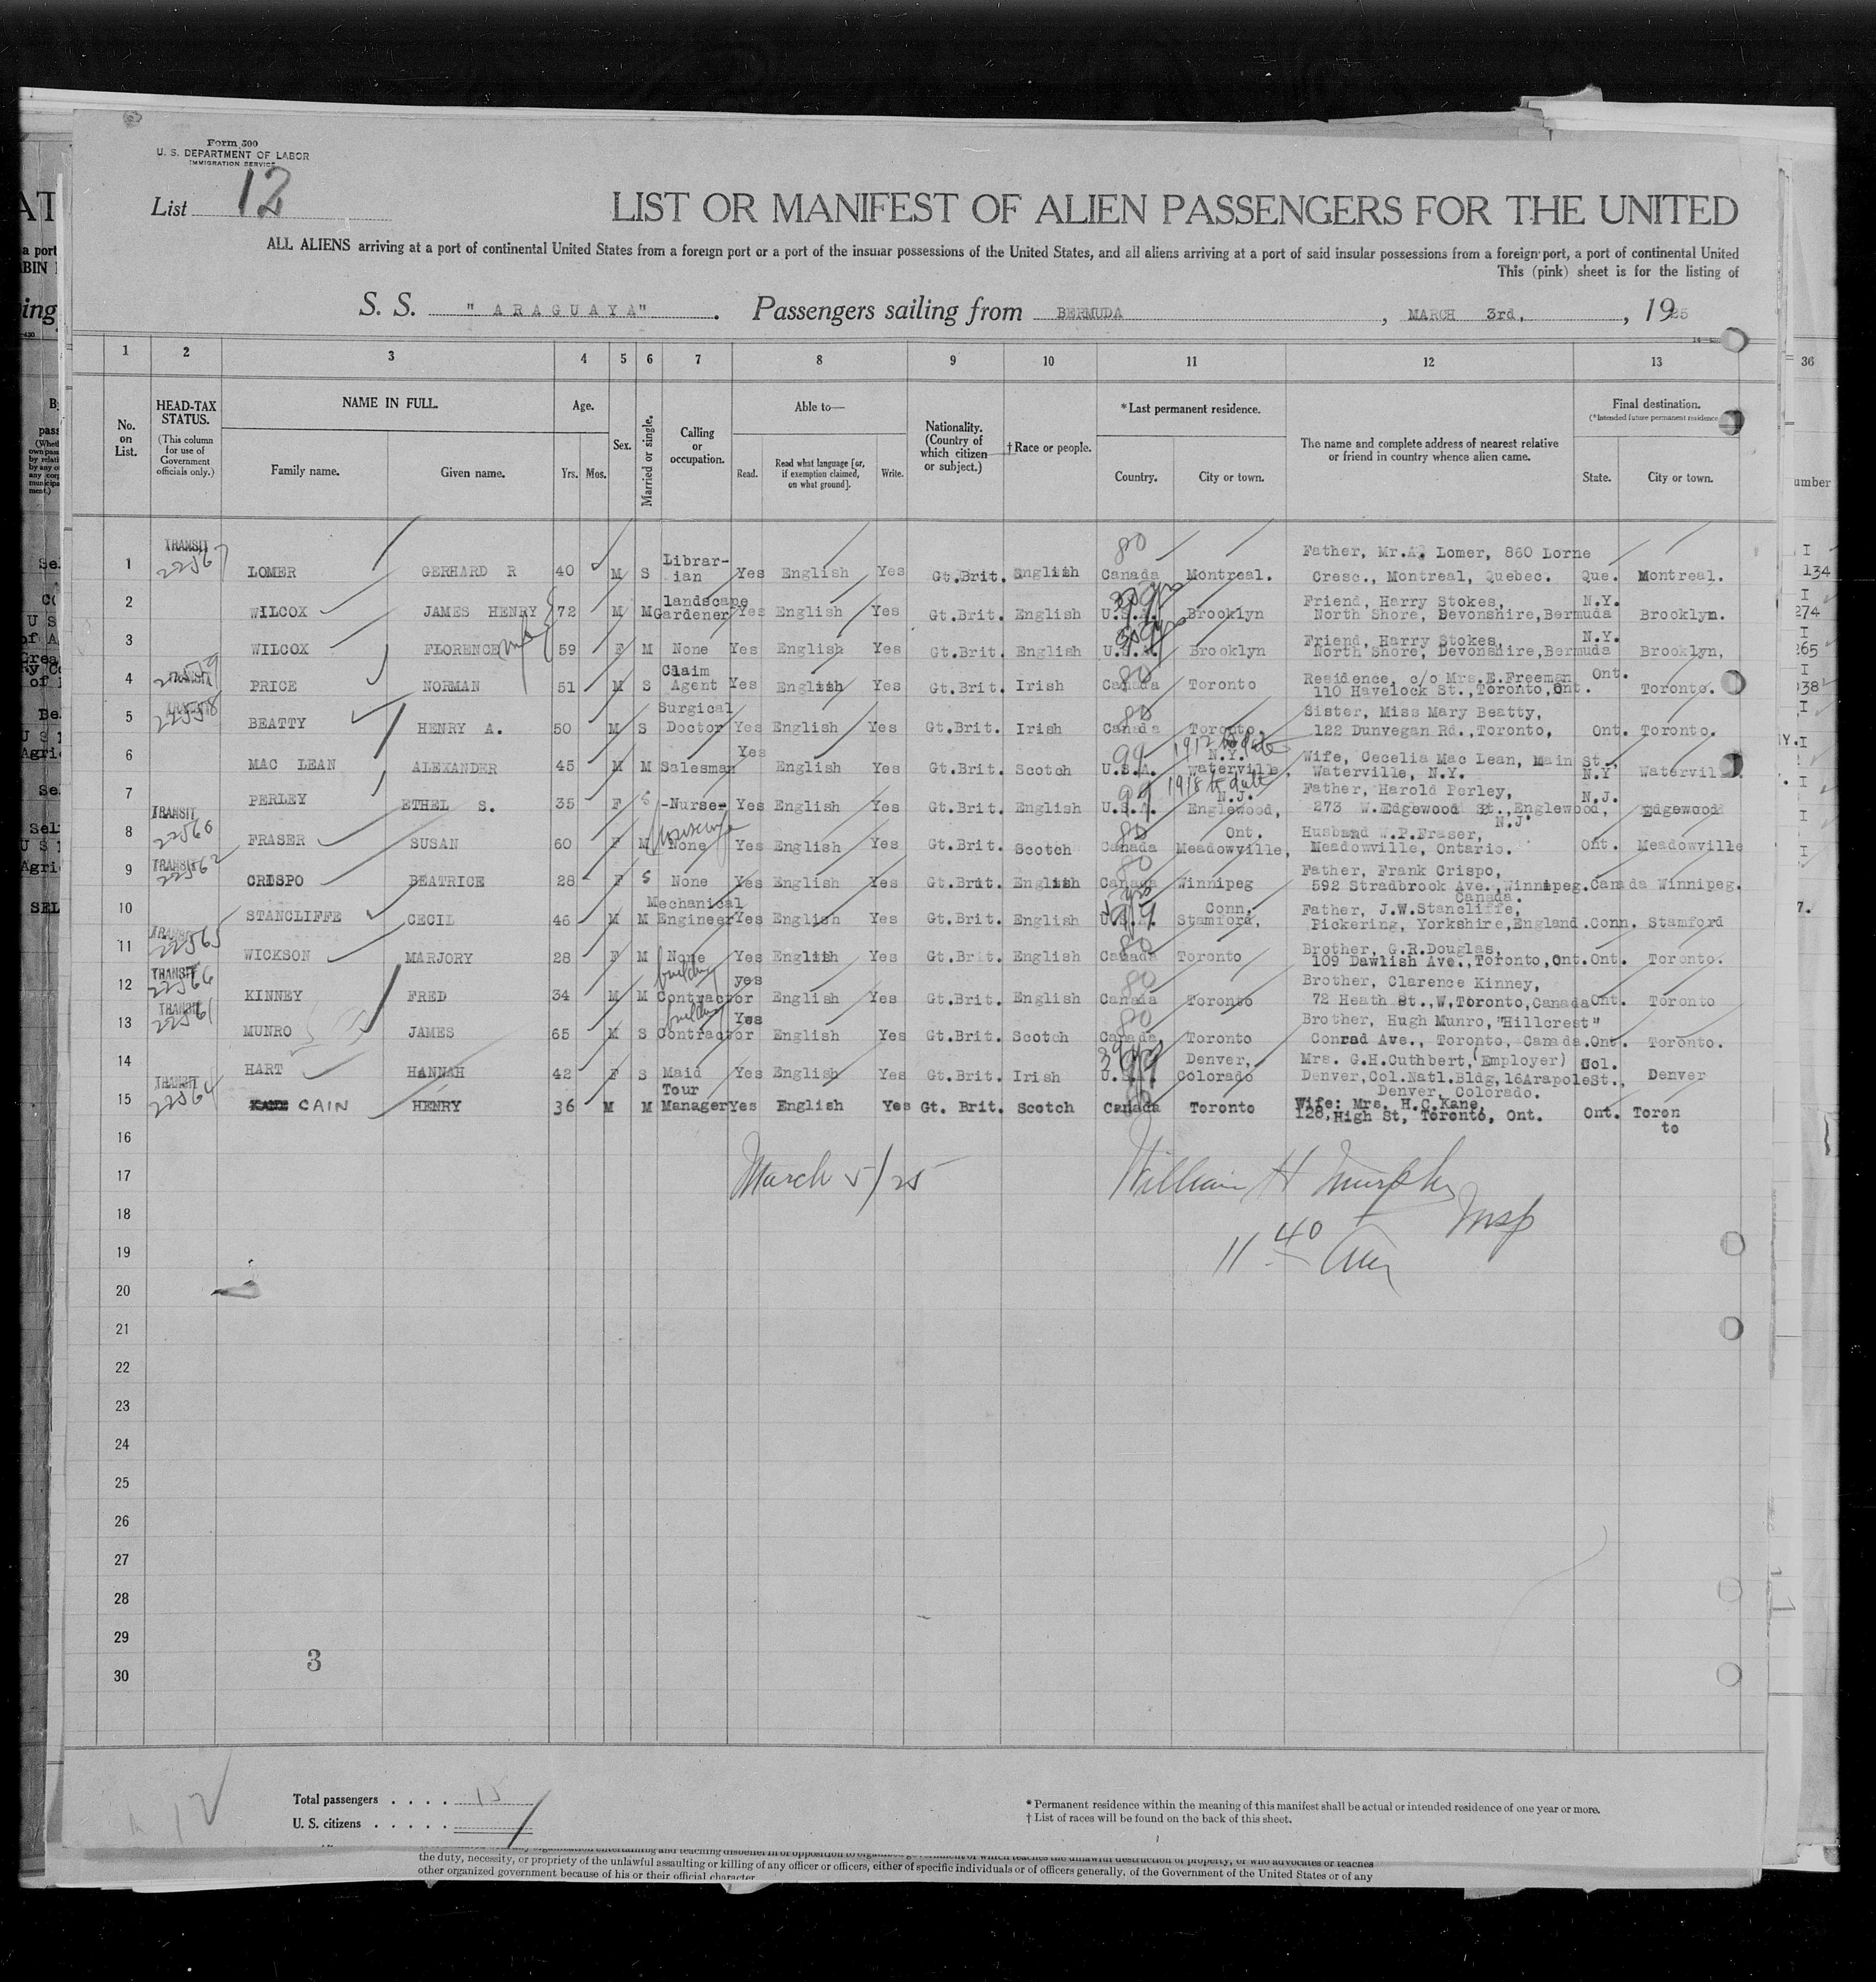 Form 500
U. S. DEPARTMENT OF LABOR
IMMIGRATION SERVICE
List 12
LIST OR MANIFEST OF ALIEN PASSENGERS FOR THE UNITED
ALL ALIENS arriving at a port of continental United States from a foreign port or a port of the insular possessions of the United States, and all aliens arriving at a port of said insular possessions from a foreign port, a port of continental United
This (pink) sheet is for the listing of
S. S. "ARAGUAYA". Passengers sailing from BERMUDA, MARCH 3rd, 1925
1 2 3 4 5 6 7 8 9 10 11 12 13
No. on List.
HEAD-TAX STATUS.
(This column for use of Government officials only.)
NAME IN FULL.
Family name. Given name.
Age.
Yrs. Mos.
Sex.
Married or single.
Calling or occupation.
Able to—
Read. Read what language [or, if exemption claimed, on what ground]. Write.
Nationality. (Country of which citizen or subject.)
† Race or people.
* Last permanent residence.
Country. City or town.
The name and complete address of nearest relative or friend in country whence alien came.
Final destination.
(*Intended future permanent residence
State. City or town.
1 TRANSIT 22567 LOMER GERHARD R 40 M S Librar-ian Yes English Yes Gt.Brit. English 80 Canada Montreal. Father, Mr.A. Lomer, 860 Lorne
Cresc., Montreal, Quebec. Que. Montreal.
2 WILCOX JAMES HENRY 72 M M landscape Gardener Yes English Yes Gt.Brit. English U.S.A. Brooklyn Friend, Harry Stokes,
North Shore, Devonshire,Bermuda N.Y. Brooklyn.
3 WILCOX FLORENCE 59 F M None Yes English Yes Gt.Brit. English U.S.A. Brooklyn Friend, Harry Stokes,
North Shore, Devonshire,Bermuda N.Y. Brooklyn,
4 TRANSIT 22559 PRICE NORMAN 51 M S Claim Agent Yes English Yes Gt.Brit. Irish 80 Canada Toronto Residence, c/o Mrs.E.Freeman
110 Havelock St.,Toronto,Ont. Ont. Toronto.
5 TRANSIT 22558 BEATTY HENRY A. 50 M S Surgical Doctor Yes English Yes Gt.Brit. Irish 80 Canada Toronto, Sister, Miss Mary Beatty,
122 Dunvegan Rd.,Toronto, Ont. Toronto.
6 MAC LEAN ALEXANDER 45 M M Salesman Yes English Yes Gt.Brit. Scotch 99 U.S.A. 1912 to date N.Y. Waterville, Wife, Cecelia Mac Lean, Main St.,
Waterville, N.Y. N.Y
7 PERLEY ETHEL S. 35 F S -Nurse- Yes English Yes Gt.Brit. English 99 U.S.A. 1918 to date N.J. Englewood, Father, Harold Perley,
273 W.Edgewood St.,Englewood, N.J. N.J. Edgewood
8 TRANSIT 22560 FRASER SUSAN 60 F M housewife None Yes English Yes Gt.Brit. Scotch 80 Canada Ont. Meadowville, Husband W.P.Fraser,
Meadowville, Ontario. Ont. Meadowville
9 TRANSIT 22562 CRISPO BEATRICE 28 F S None Yes English Yes Gt.Brit. English 80 Canada Winnipeg Father, Frank Crispo,
592 Stradbrook Ave.,Winnipeg. Canada. Canada Winnipeg.
10 STANCLIFFE CECIL 46 M M Mechanical Engineer Yes English Yes Gt.Brit. English U.S.A. Conn. Stamford, Father, J.W.Stancliffe,
Pickering, Yorkshire,England. Conn. Stamford
11 TRANSIT 22565 WICKSON MARJORY 28 F M None Yes English Yes Gt.Brit. English 80 Canada Toronto Brother, G.R.Douglas,
109 Dawlish Ave.,Toronto,Ont. Ont. Toronto.
12 TRANSIT 22566 KINNEY FRED 34 M M building Contractor yes English Yes Gt.Brit. English 80 Canada Toronto Brother, Clarence Kinney,
72 Heath St.,W,Toronto,Canada Ont. Toronto
13 TRANSIT 22561 MUNRO JAMES 65 M S building Contractor Yes English Yes Gt.Brit. Scotch 80 Canada Toronto Brother, Hugh Munro,"Hillcrest"
Conrad Ave., Toronto, Canada. Ont. Toronto.
14 HART HANNAH 42 F S Maid Yes English Yes Gt.Brit. Irish U.S.A. Denver, Colorado Mrs. G.H.Cuthbert,(Employer)
Denver,Col.Natl.Bldg,16ArapoleSt., Denver, Colorado. Col. Denver
15 TRANSIT 22564 KANE CAIN HENRY 36 M M Tour Manager Yes English Yes Gt. Brit. Scotch 80 Canada Toronto Wife: Mrs. H.C.Kane,
128,High St, Toronto, Ont. Ont. Toronto
16
17 March 5/25 William H Murphy
18 Insp
19 11 40 am
20
21
22
23
24
25
26
27
28
29
30
3
12
Total passengers . . . . 15
U. S. citizens . . . . .
* Permanent residence within the meaning of this manifest shall be actual or intended residence of one year or more.
† List of races will be found on the back of this sheet.
the duty, necessity, or propriety of the unlawful assaulting or killing of any officer or officers, either of specific individuals or of officers generally, of the Government of the United States or of any
other organized government because of his or their official character